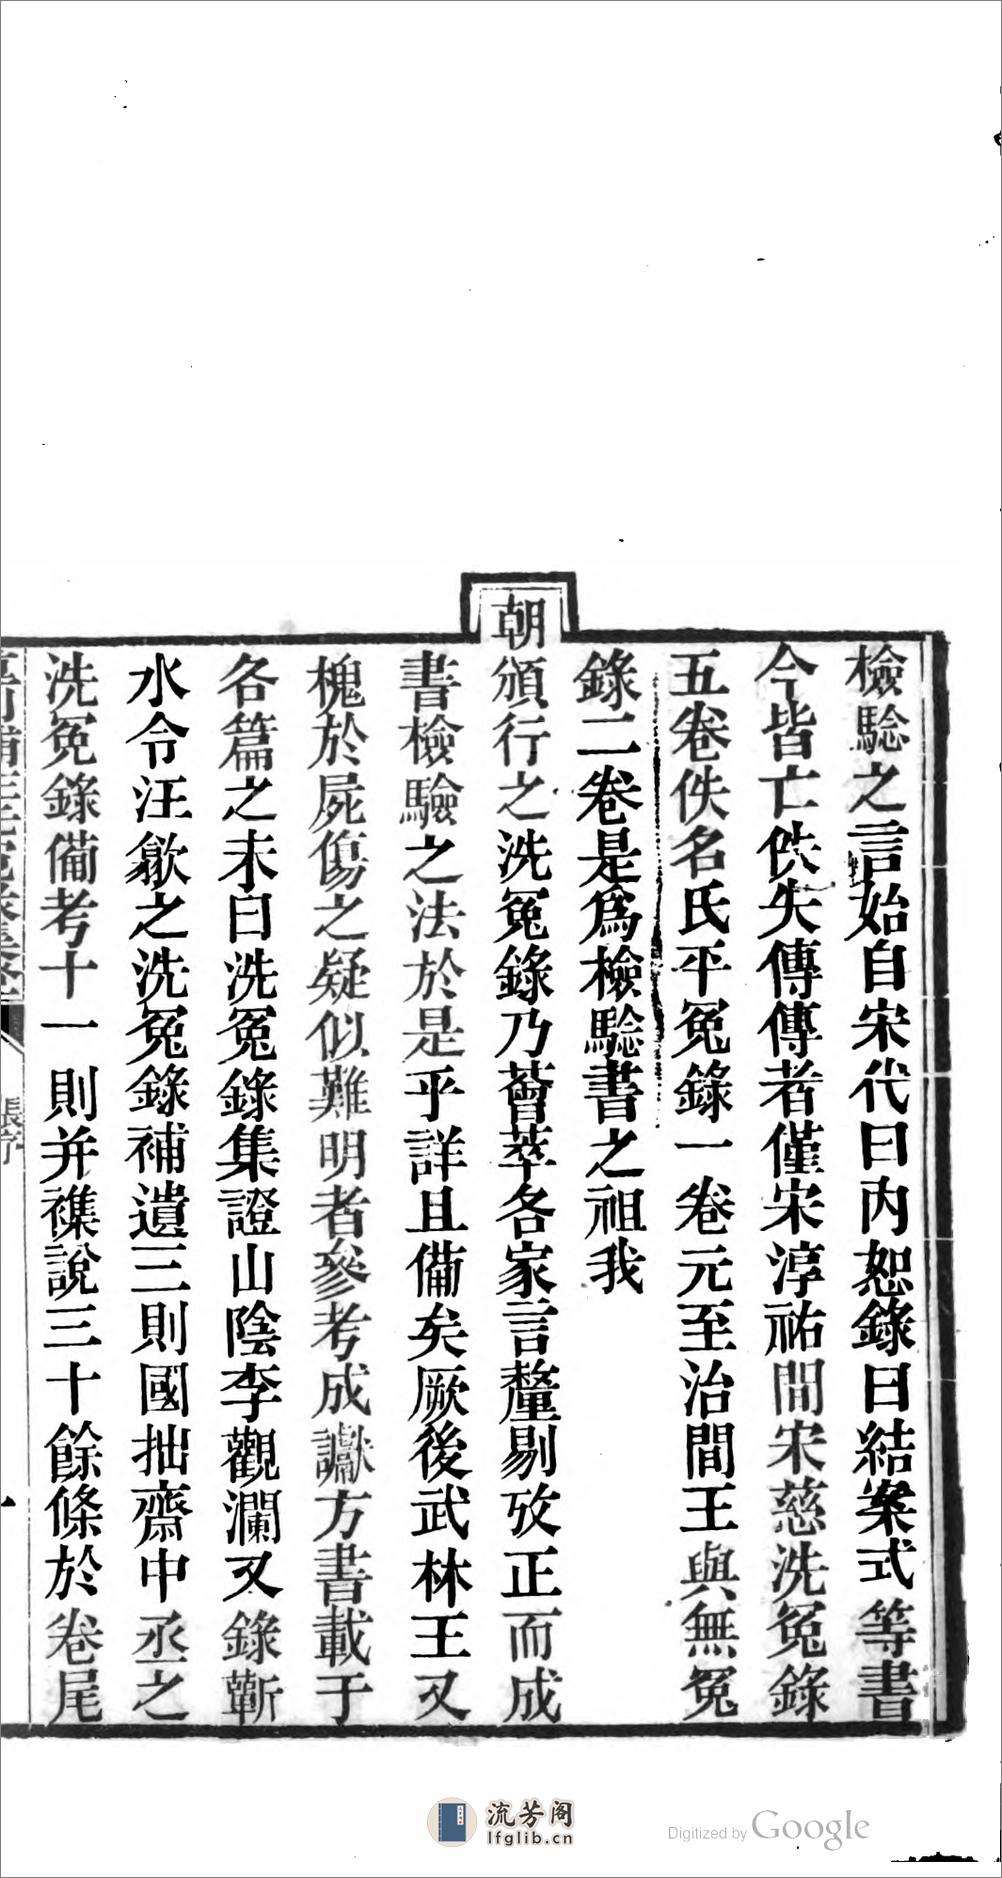 檢驗之言始自宋代曰內恕錄曰結案式等書
今皆亡佚失傳傳者僅宋淳祐間宋慈洗冤錄
五卷佚名氏平冤錄一卷元至治間王與無冤
錄二卷是爲檢驗書之祖我
朝頒行之洗冤錄乃薈萃各家言釐剔攷正而成
書檢驗之法於是乎詳且備矣厥後武林王又
槐於屍傷之疑似難明者參考成讞方書載于
各篇之末曰洗冤錄集證山陰李觀瀾又錄蘄
水令汪歙之洗冤錄補遺三則國拙齋中丞之
洗冤錄備考十一則并襍說三十餘條於卷尾
張序
流芳阁
lfglib.cn
Digitized by Google